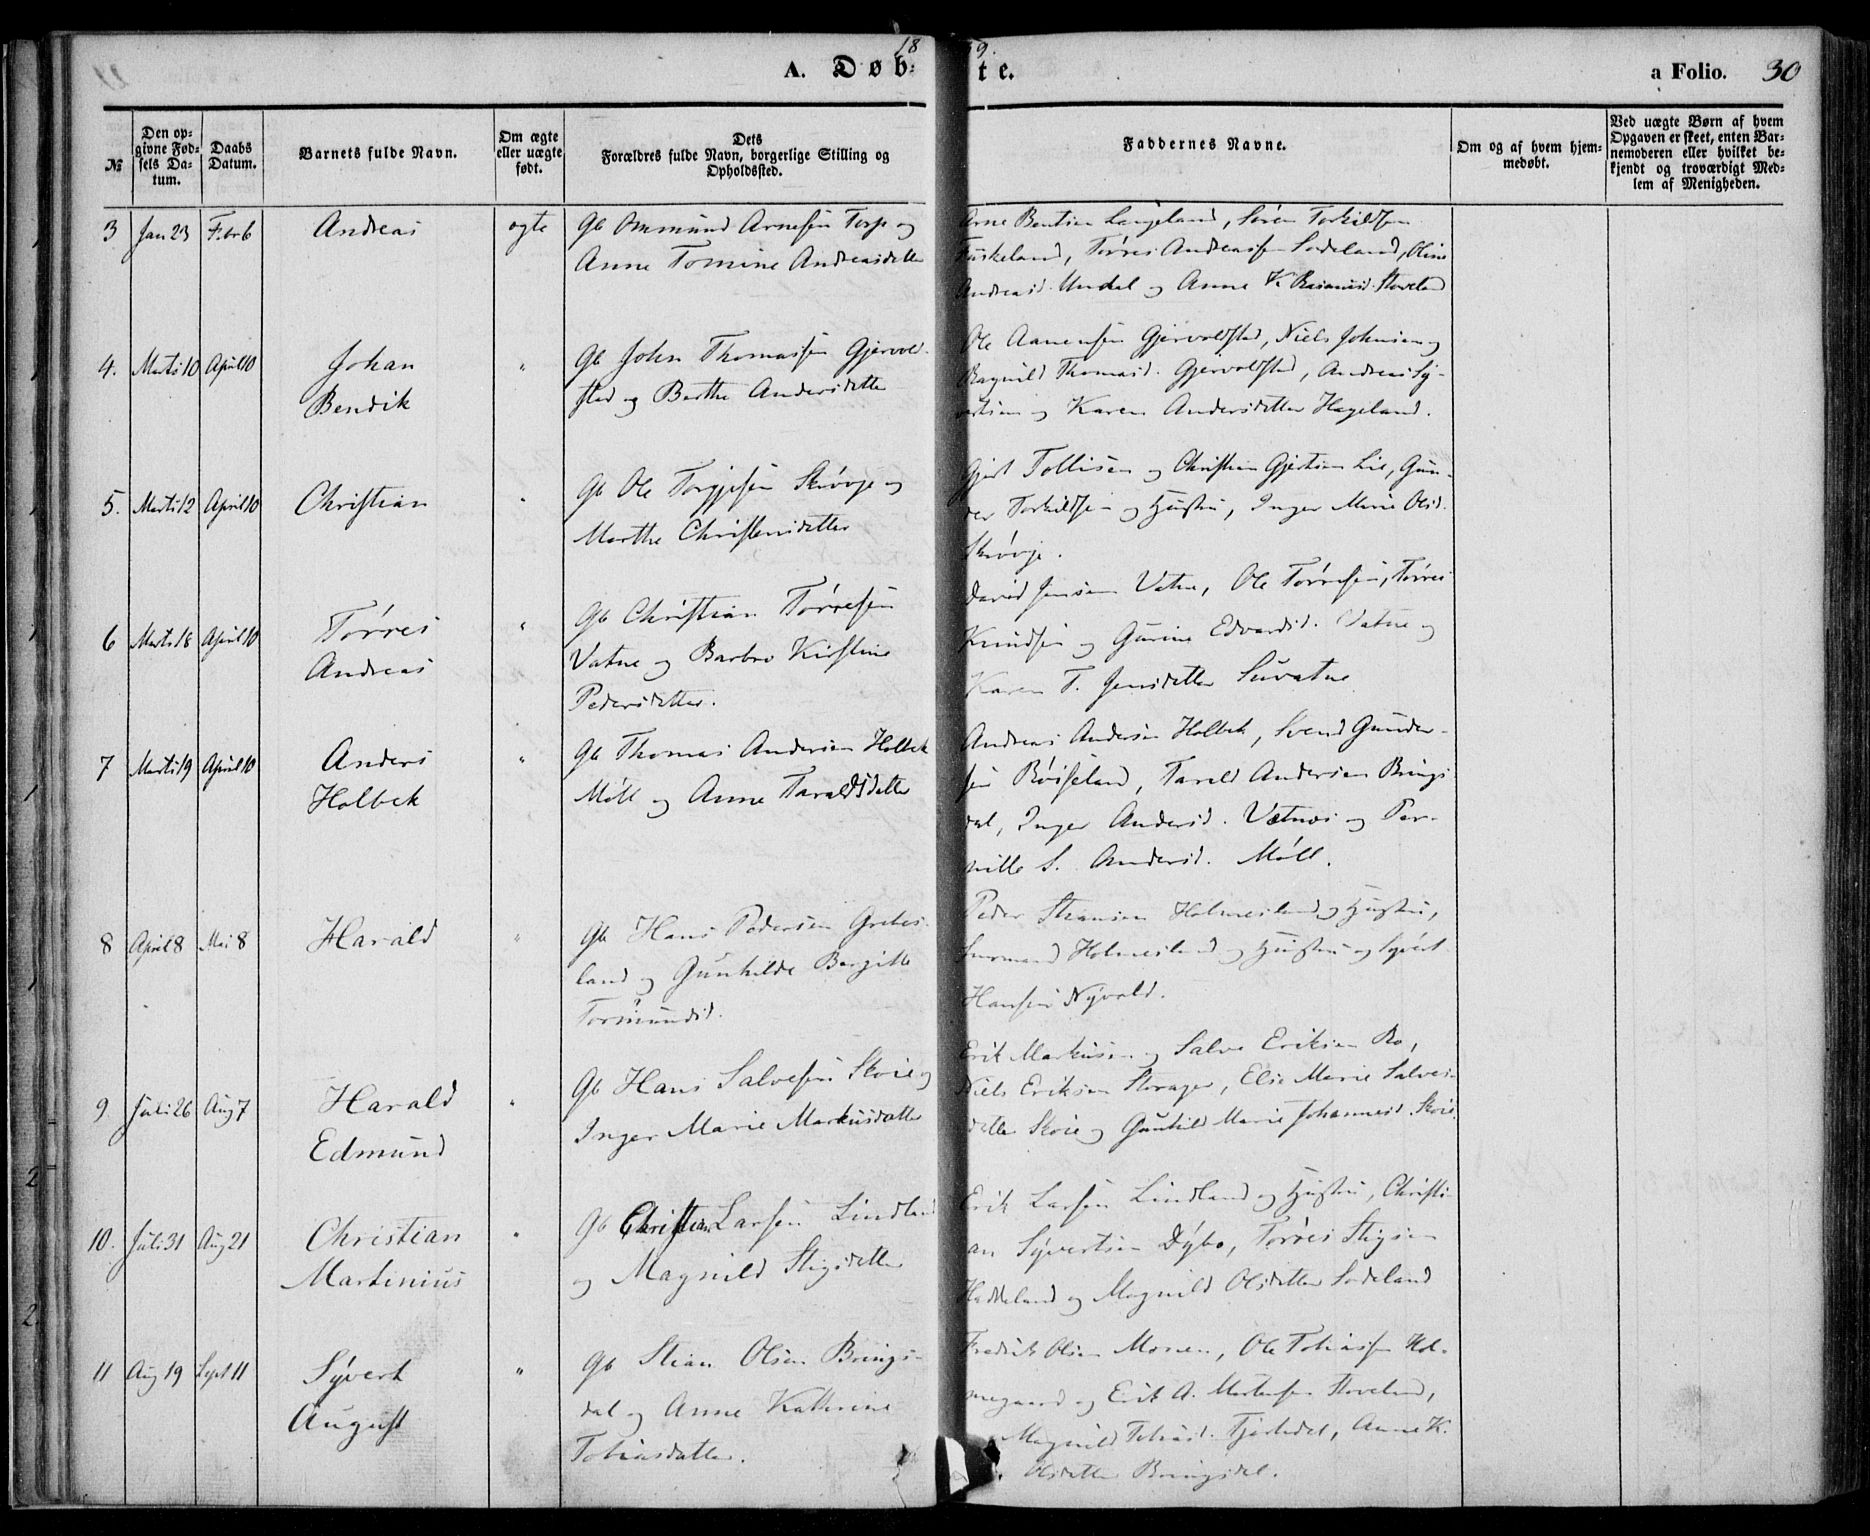 18 59.
A. Døb- te. a Folio. 30
№ Den opgivne Fødsels Datum. Daabs Datum. Barnets fulde Navn. Om ægte eller uægte født. Dets Forældres fulde Navn, borgerlige Stilling og Opholdssted. Faddernes Navne. Om og af hvem hjemmedøbt. Ved uægte Børn af hvem Opgaven er skeet, enten Barnemoderen eller hvilket bekjendt og troværdigt Medlem af Menigheden.
3 Jan 23 Febr 6 Andreas ægte
Gb Ommund Arnesen Torp og
Anne Tomine Andreasdatter
Arne Bentsen Langeland, Søren Torkildsen
Fuskeland, Tørres Andreassen Sodeland, Oline
Andreasd. Undal og Anne K. Rasmusd. Stoveland
4. Marts 10 April 10 Johan
Bendik "
Gb John Thomassen Gjervold-
stad og Berthe Andersdatter
Ole Aanensen Gjervoldstad, Niels Johnsen og
Ragnild Thomasd. Gjervoldstad, Andreas Sy-
vertsen og Karen Andersdatter Hageland.
5. Marts 12 April 10 Christian "
Gb Ole Torgjesen Skøvje og
Marthe Christensdatter
Gjert Tollisen og Christian Gjertsen Lie, Gun-
der Torkildsen og Hustru, Inger Marie Olsd.
Skøvje.
6 Marts 18 April 10 Tørres
Andreas "
Gb Christian Tørresen
Vatne og Barbro Kirstine
Pedersdatter.
David Jensen Vatne, Ole Tørresen, Tørres
Knudsen og Gurine Edvardsd. Vatne og
Karen T. Jensdatter Suvatne
7 Marts 19 April 10 Anders
Holbek "
Gb Thomas Andersen Holbek
Möll og Anne Taraldsdatter
Andreas Andersen Holbek, Svend Gunder-
sen Røiseland, Tarald Andersen Brings-
dal, Inger Andersd. Vatnes og Per-
nille S. Andersd. Möll.
8 April 8 Mai 8 Harald "
Gb Hans Pedersen Greies-
land og Gunhilde Bergitte
Tormundsd.
Peder Stiansen Holmesland og Hustru,
Holmesland og Hustru og Syvert
Hansen Nyvold.
9 Juli 26 Aug 7 Harald
Edmund "
Gb Hans Salvesen Skoie og
Inger Marie Markusdatter
Erik Markusen og Salve Eriksen Ro,
Niels Eriksen Storager, Else Marie Salves-
datter Skoie og Gunhild Marie Johannesd. Skoie.
10. Juli 31 Aug 21 Christian
Martinius "
Gb Christen Larsen Lindland
og Magnild Stigsdatter
Erik Larsen Lindland og Hustru, Christi-
an Syvertsen Dybo, Tørres Stigsen
Haddeland og Magnild Olsdatter Sodeland
11 Aug 19 Sept 11 Syvert
August "
Gb Stian Olsen Brings-
dal og Anne Kathrine
Tobiasdatter.
Fredrik Olsen Monen, Ole Tobiassen Hol-
megaard og Erik A. Mortensen Stoveland,
Magnild Tobiasd. Fjeldsdal, Anne K.
Olsdatter Bringsdal.